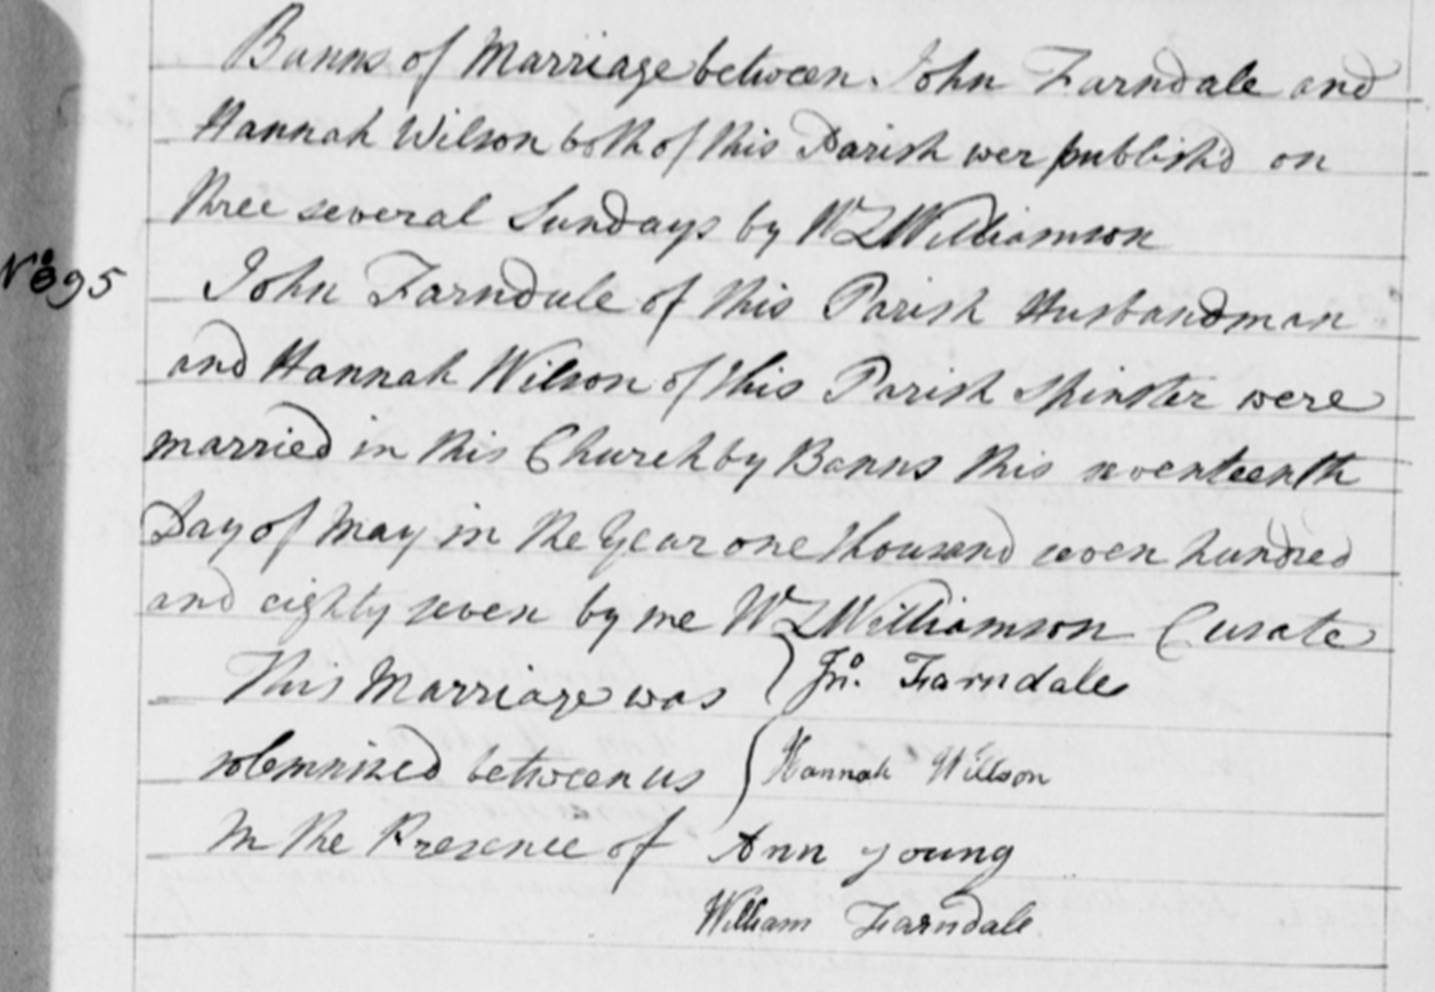 Banns of Marriage between John Farndale and
Hannah Wilson both of this Parish wer publish'd on
three several Sundays by WLWilliamson
No 95
John Farndale of this Parish Husbandman
and Hannah Wilson of this Parish Spinster were
married in this Church by Banns this seventeenth
Day of May in the Year one thousand seven hundred
and eighty seven by me WLWilliamson Curate
This Marriage was } Jno. Farndale
solemnized between us { Hannah Willson
In the Presence of Ann young
William Farndale